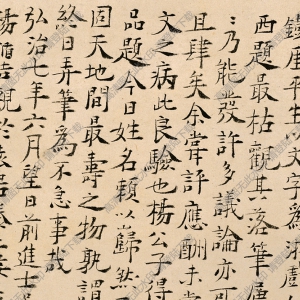 崖平生文字為清
西題最枯觀其落筆屬
〻乃能發許多議論亦可
且肆矣余嘗評應酬未
文之病此良驗也楊公子得
品題今日姓名賴以巋然
固天地間最壽之物孰謂
終日弄筆爲不急事哉
弘治七年六月望日前進士
楊循吉觀於